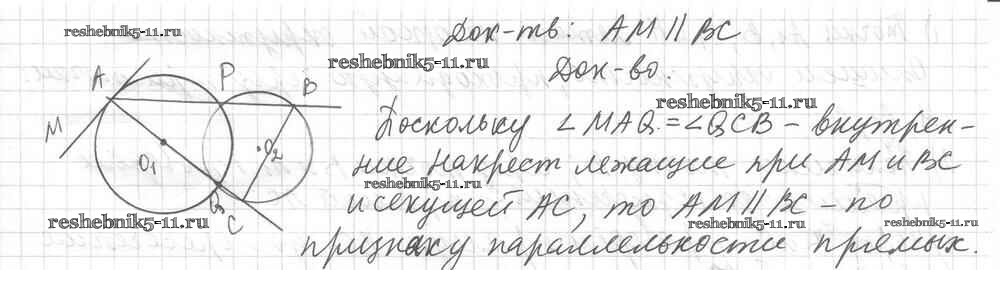 reshebnik5-11.ru
Док-ть: AM || BC
reshebnik5-11.ru
Док-во.
A
P
B
reshebnik5-11.ru
Поскольку ∠MAQ = ∠QCB – внутрен-
M
O1
O2
ние накрест лежащие при AM и BC
reshebnik5-11.ru
Q
C
и секущей AC, то AM || BC – по
reshebnik5-11.ru
reshebnik5-11.ru
признаку параллельности прямых.